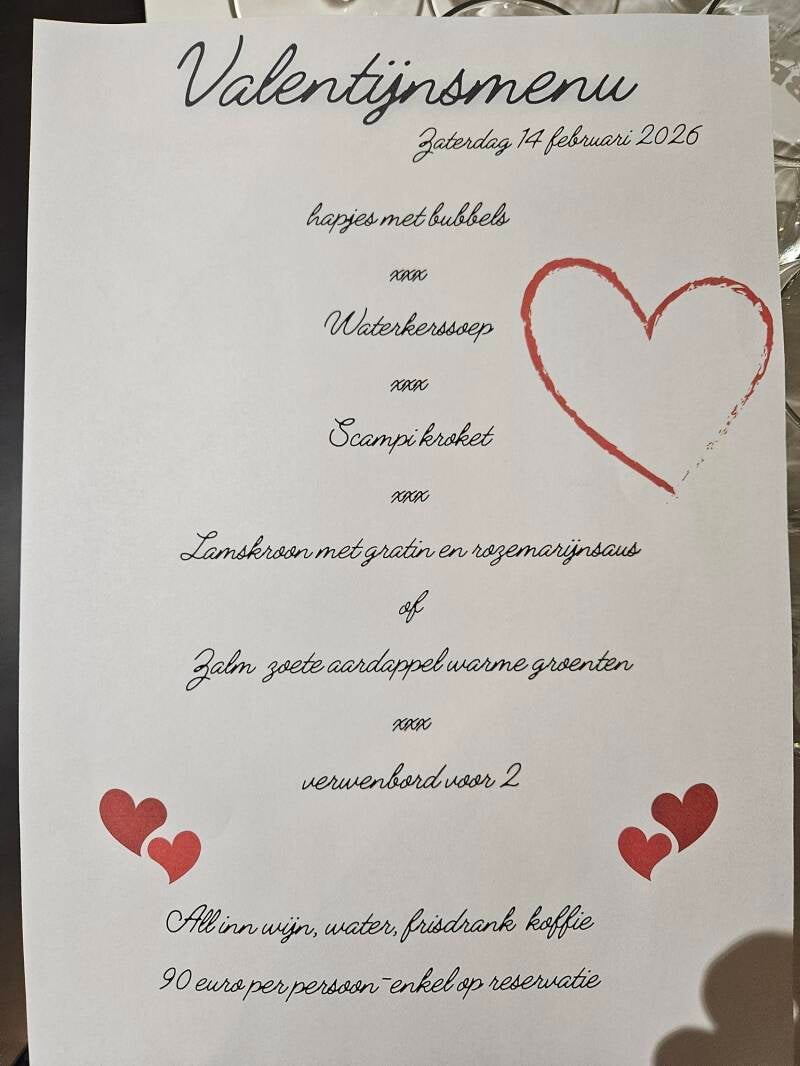 Valentijnsmenu
Zaterdag 14 februari 2026
hapjes met bubbels
xxx
Waterkerssoep
xxx
Scampi kroket
xxx
Lamskroon met gratin en rozemarijnsaus
of
Zalm zoete aardappel warme groenten
xxx
verwenbord voor 2
All inn wijn, water, frisdrank koffie
90 euro per persoon-enkel op reservatie